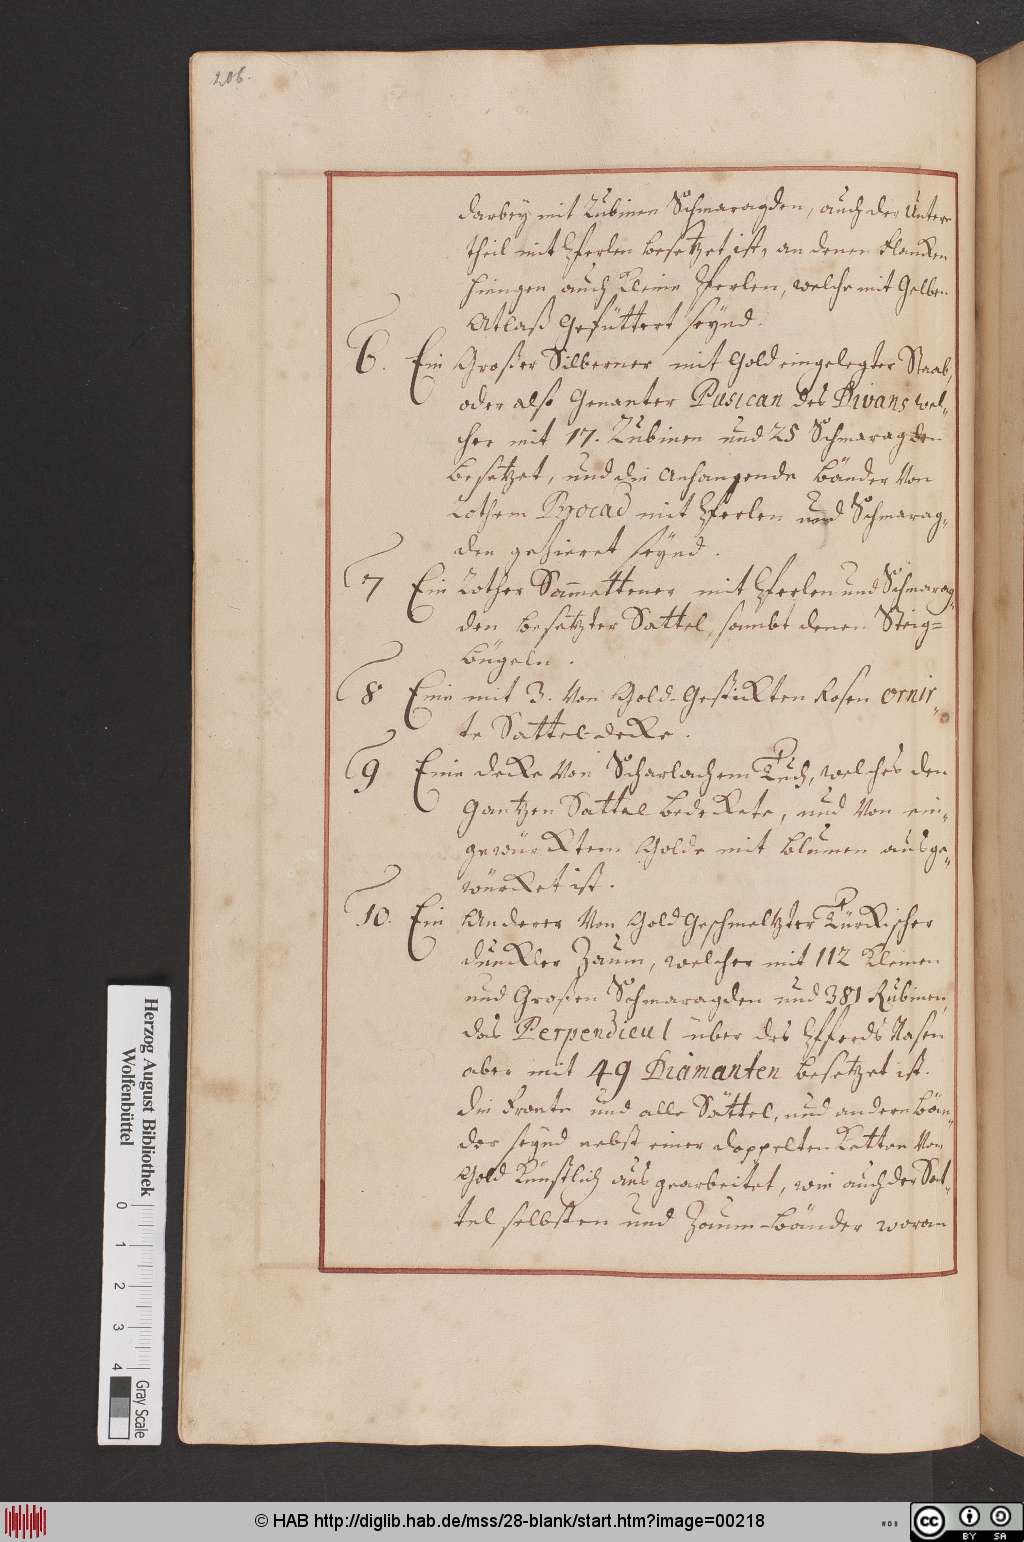 206.
darbey mit Rubinen Schmaragden, auch der Unter-
theil mit Pferlen besetzet ist, an denen Flancken
hiengen auch kleine Pferlen, welche mit Gelben
Atlaß gefüttert seynd.
6. Ein Großer Silberner mit Gold eingelegter Staab,
oder also Genanter Pusican des Divans wel-
cher mit 17. Rubinen und 25 Schmaragden
besetzet, und die anhangende Bänder von
Rothem Brocad mit Pferlen und Schmarag-
den gezieret seynd.
7 Ein Rother Sammettener mit Pferlen und Schmarag-
den besetzter Sattel, sambt denen Steig=
bügeln.
8 Eine mit 3. von Gold-Gestickten Rosen ornir-
te Sattel-decke.
9 Eine decke von Scharlachem Tuch, welches den
gantzen Sattel bedeckete, und von ein-
gewürcktem Golde mit Blumen ausge-
würcket ist.
10. Ein Anderer von Gold Geschmeltzter Türckischer
dunckler Zaum, welcher mit 112 kleinen
und Großen Schmaragden und 381 Rubinen,
das Perpendicul über des Pferds Nasen
aber mit 49 Diamanten besetzet ist.
die Fronte und alle Sättel, und andere Bän-
der seynd nebst einer doppelten Ketten von
Gold künstlich ausgearbeitet, wie auch der Sat-
tel selbsten und Zaum-bänder woran
Herzog August Bibliothek
Wolfenbüttel
0 1 2 3 4
Gray Scale
© HAB http://diglib.hab.de/mss/28-blank/start.htm?image=00218
WDB
CC BY SA